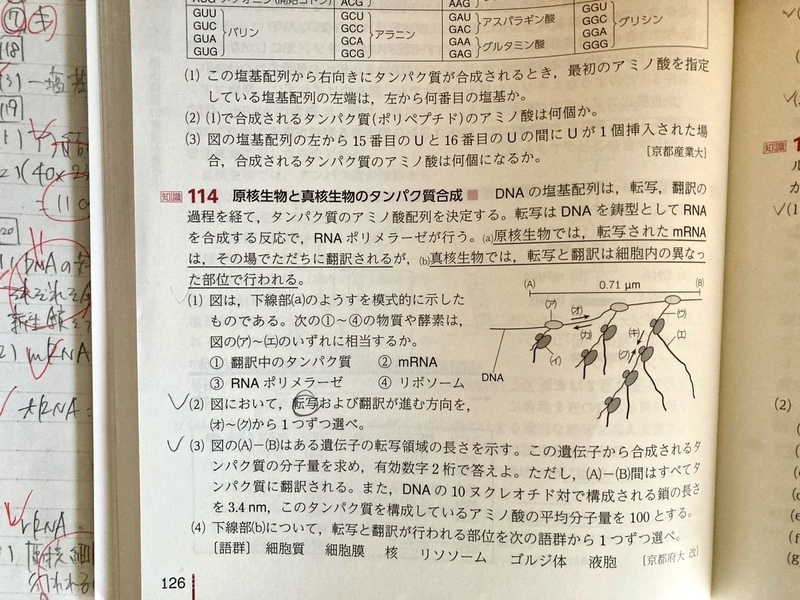 GUU
GUC
GUA
GUG
バリン
GCU
GCC
GCA
GCG
アラニン
AAG
GAU
GAC
アスパラギン酸
GAA
GAG
グルタミン酸
GGU
GGC
GGA
GGG
グリシン
(1) この塩基配列から右向きにタンパク質が合成されるとき，最初のアミノ酸を指定
している塩基配列の左端は，左から何番目の塩基か。
(2) (1)で合成されるタンパク質(ポリペプチド)のアミノ酸は何個か。
(3) 図の塩基配列の左から 15 番目の U と 16 番目の U の間に U が 1 個挿入された場
合，合成されるタンパク質のアミノ酸は何個になるか。
[京都産業大]
知識 114 原核生物と真核生物のタンパク質合成 DNA の塩基配列は，転写，翻訳の
過程を経て，タンパク質のアミノ酸配列を決定する。転写は DNA を鋳型として RNA
を合成する反応で，RNA ポリメラーゼが行う。(a)原核生物では，転写された mRNA
は，その場でただちに翻訳されるが，(b)真核生物では，転写と翻訳は細胞内の異なっ
た部位で行われる。
(1) 図は，下線部(a)のようすを模式的に示した
ものである。次の①～④の物質や酵素は，
図の(ア)～(エ)のいずれに相当するか。
① 翻訳中のタンパク質 ② mRNA
③ RNA ポリメラーゼ ④ リボソーム
(A) 0.71 μm (B)
(ア)
(オ)
(ウ)
(イ)
(カ)
(キ)
(エ)
(ク)
DNA
(2) 図において，転写および翻訳が進む方向を，
(オ)～(ク)から 1 つずつ選べ。
(3) 図の(A)－(B)はある遺伝子の転写領域の長さを示す。この遺伝子から合成されるタ
ンパク質の分子量を求め，有効数字 2 桁で答えよ。ただし，(A)－(B)間はすべてタ
ンパク質に翻訳される。また，DNA の 10 ヌクレオチド対で構成される鎖の長さ
を 3.4 nm，このタンパク質を構成しているアミノ酸の平均分子量を 100 とする。
(4) 下線部(b)について，転写と翻訳が行われる部位を次の語群から 1 つずつ選べ。
〔語群〕 細胞質 細胞膜 核 リソソーム ゴルジ体 液胞 [京都府大 改]
126
知識
(2)
mRNA
rRNA